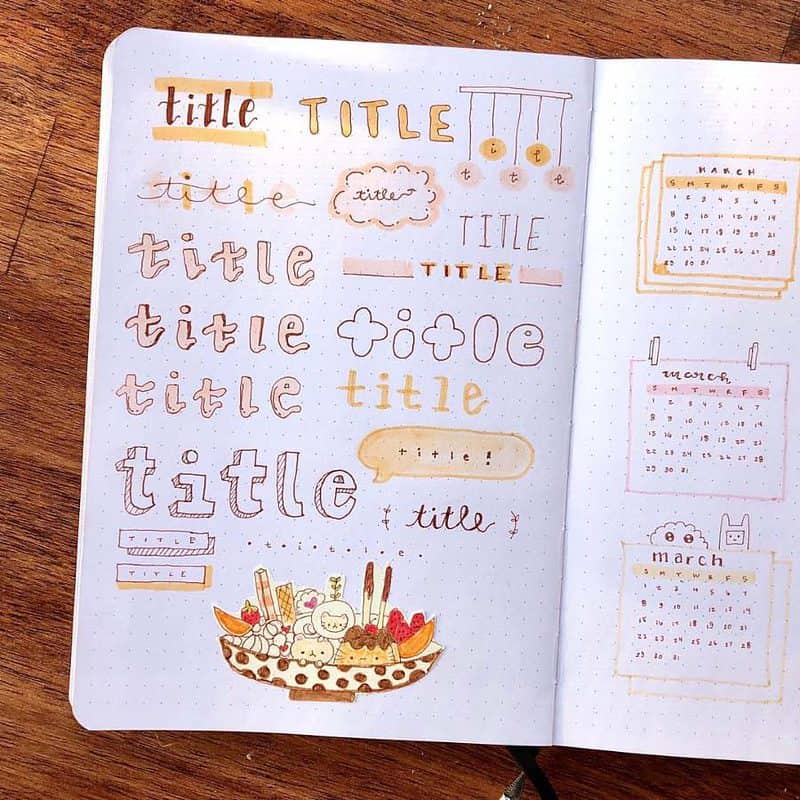 title
TITLE
title
title
title
TITLE
title
TITLE
title
title
title
title
title!
title
title
TITLE
•t•i•t•l•e•
TITLE
MARCH
S M T W R F S
1 2 3 4 5 6 7
8 9 10 11 12 13 14
15 16 17 18 19 20 21
22 23 24 25 26 27 28
29 30 31
march
S M T W R F S
1 2 3 4 5 6 7
8 9 10 11 12 13 14
15 16 17 18 19 20 21
22 23 24 25 26 27 28
29 30 31
march
S M T W R F S
1 2 3 4 5 6 7
8 9 10 11 12 13 14
15 16 17 18 19 20 21
22 23 24 25 26 27 28
29 30 31